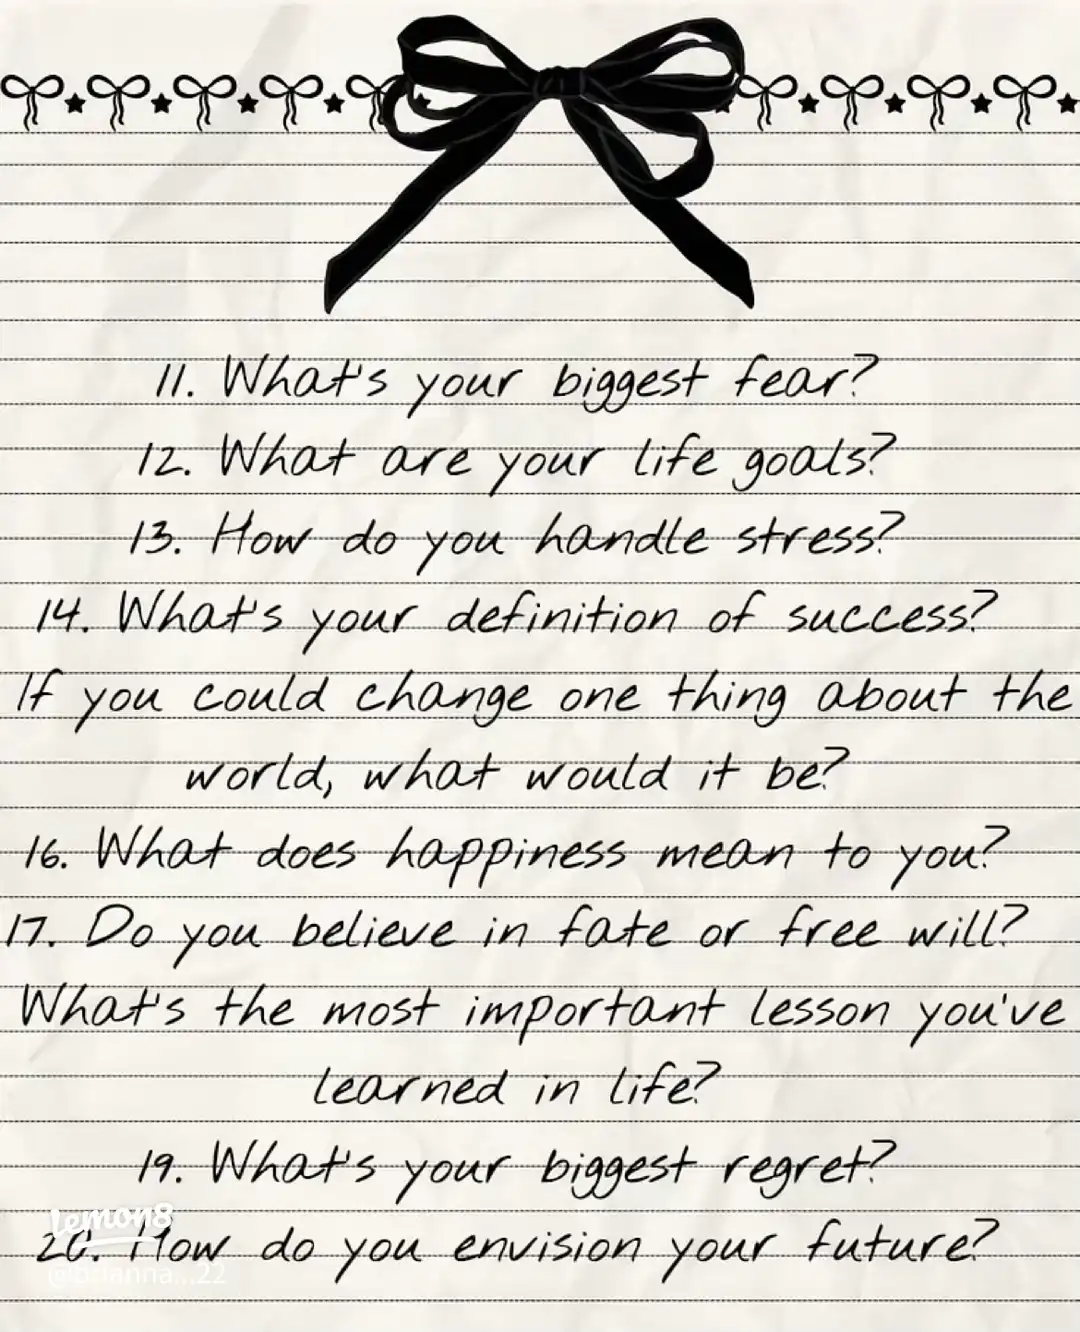 11. What's your biggest fear?
12. What are your life goals?
13. How do you handle stress?
14. What's your definition of success?
If you could change one thing about the
world, what would it be?
16. What does happiness mean to you?
17. Do you believe in fate or free will?
What's the most important lesson you've
learned in life?
19. What's your biggest regret?
20. How do you envision your future?
Lemon8
@brianna...22